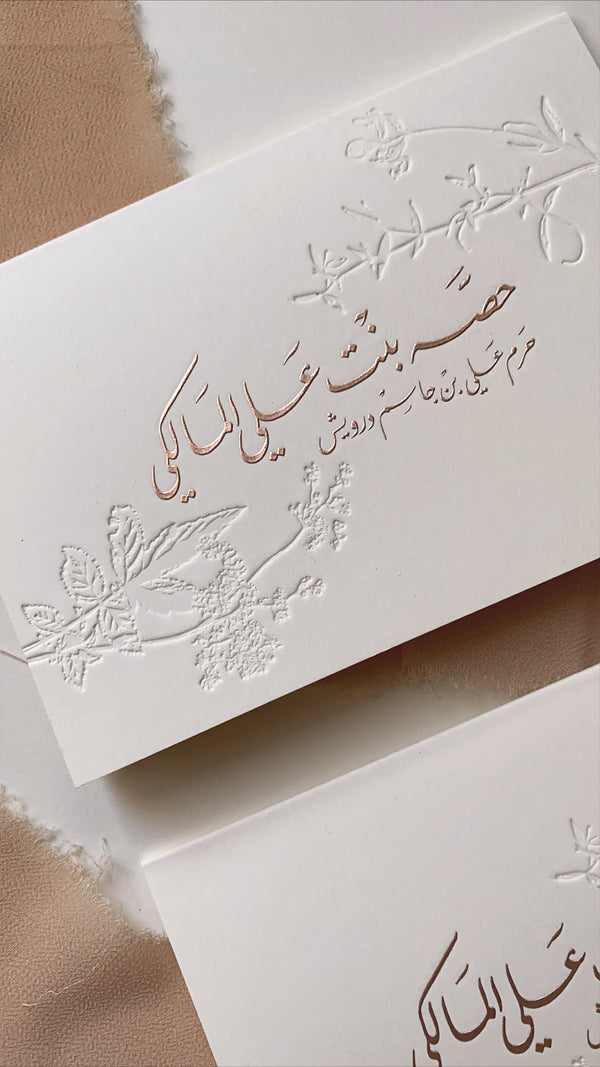 حصَّه بنْت عَلي المَالكي
حَرَم عَلي بنْ جاسِمْ درويش
عَلي المَالكي